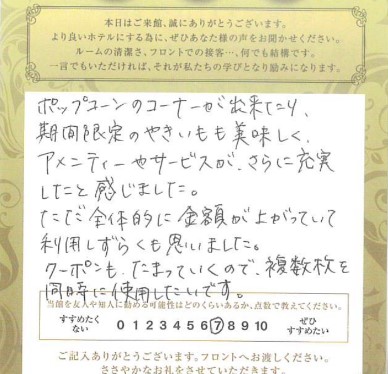 本日はご来館、誠にありがとうございます。
より良いホテルにする為に、ぜひあなた様の声をお聞かせください。
ルームの清潔さ、フロントでの接客…、何でも結構です。
一言でもいただければ、それが私たちの学びとなり励みになります。
ポップコーンのコーナーが出来たり、
期間限定のやきいもも美味しく、
アメニティーやサービスが、さらに充実
したと感じました。
ただ全体的に金額が上がっていて
利用しずらくも思いました。
クーポンも、たまっていくので、複数枚を
同時に使用したいです。
当館を友人や知人に勧める可能性はどのくらいあるか、点数で教えてください。
すすめたくない 0 1 2 3 4 5 6 7 8 9 10 ぜひすすめたい
ご記入ありがとうございます。フロントへお渡しください。
ささやかなお礼をさせていただきます。